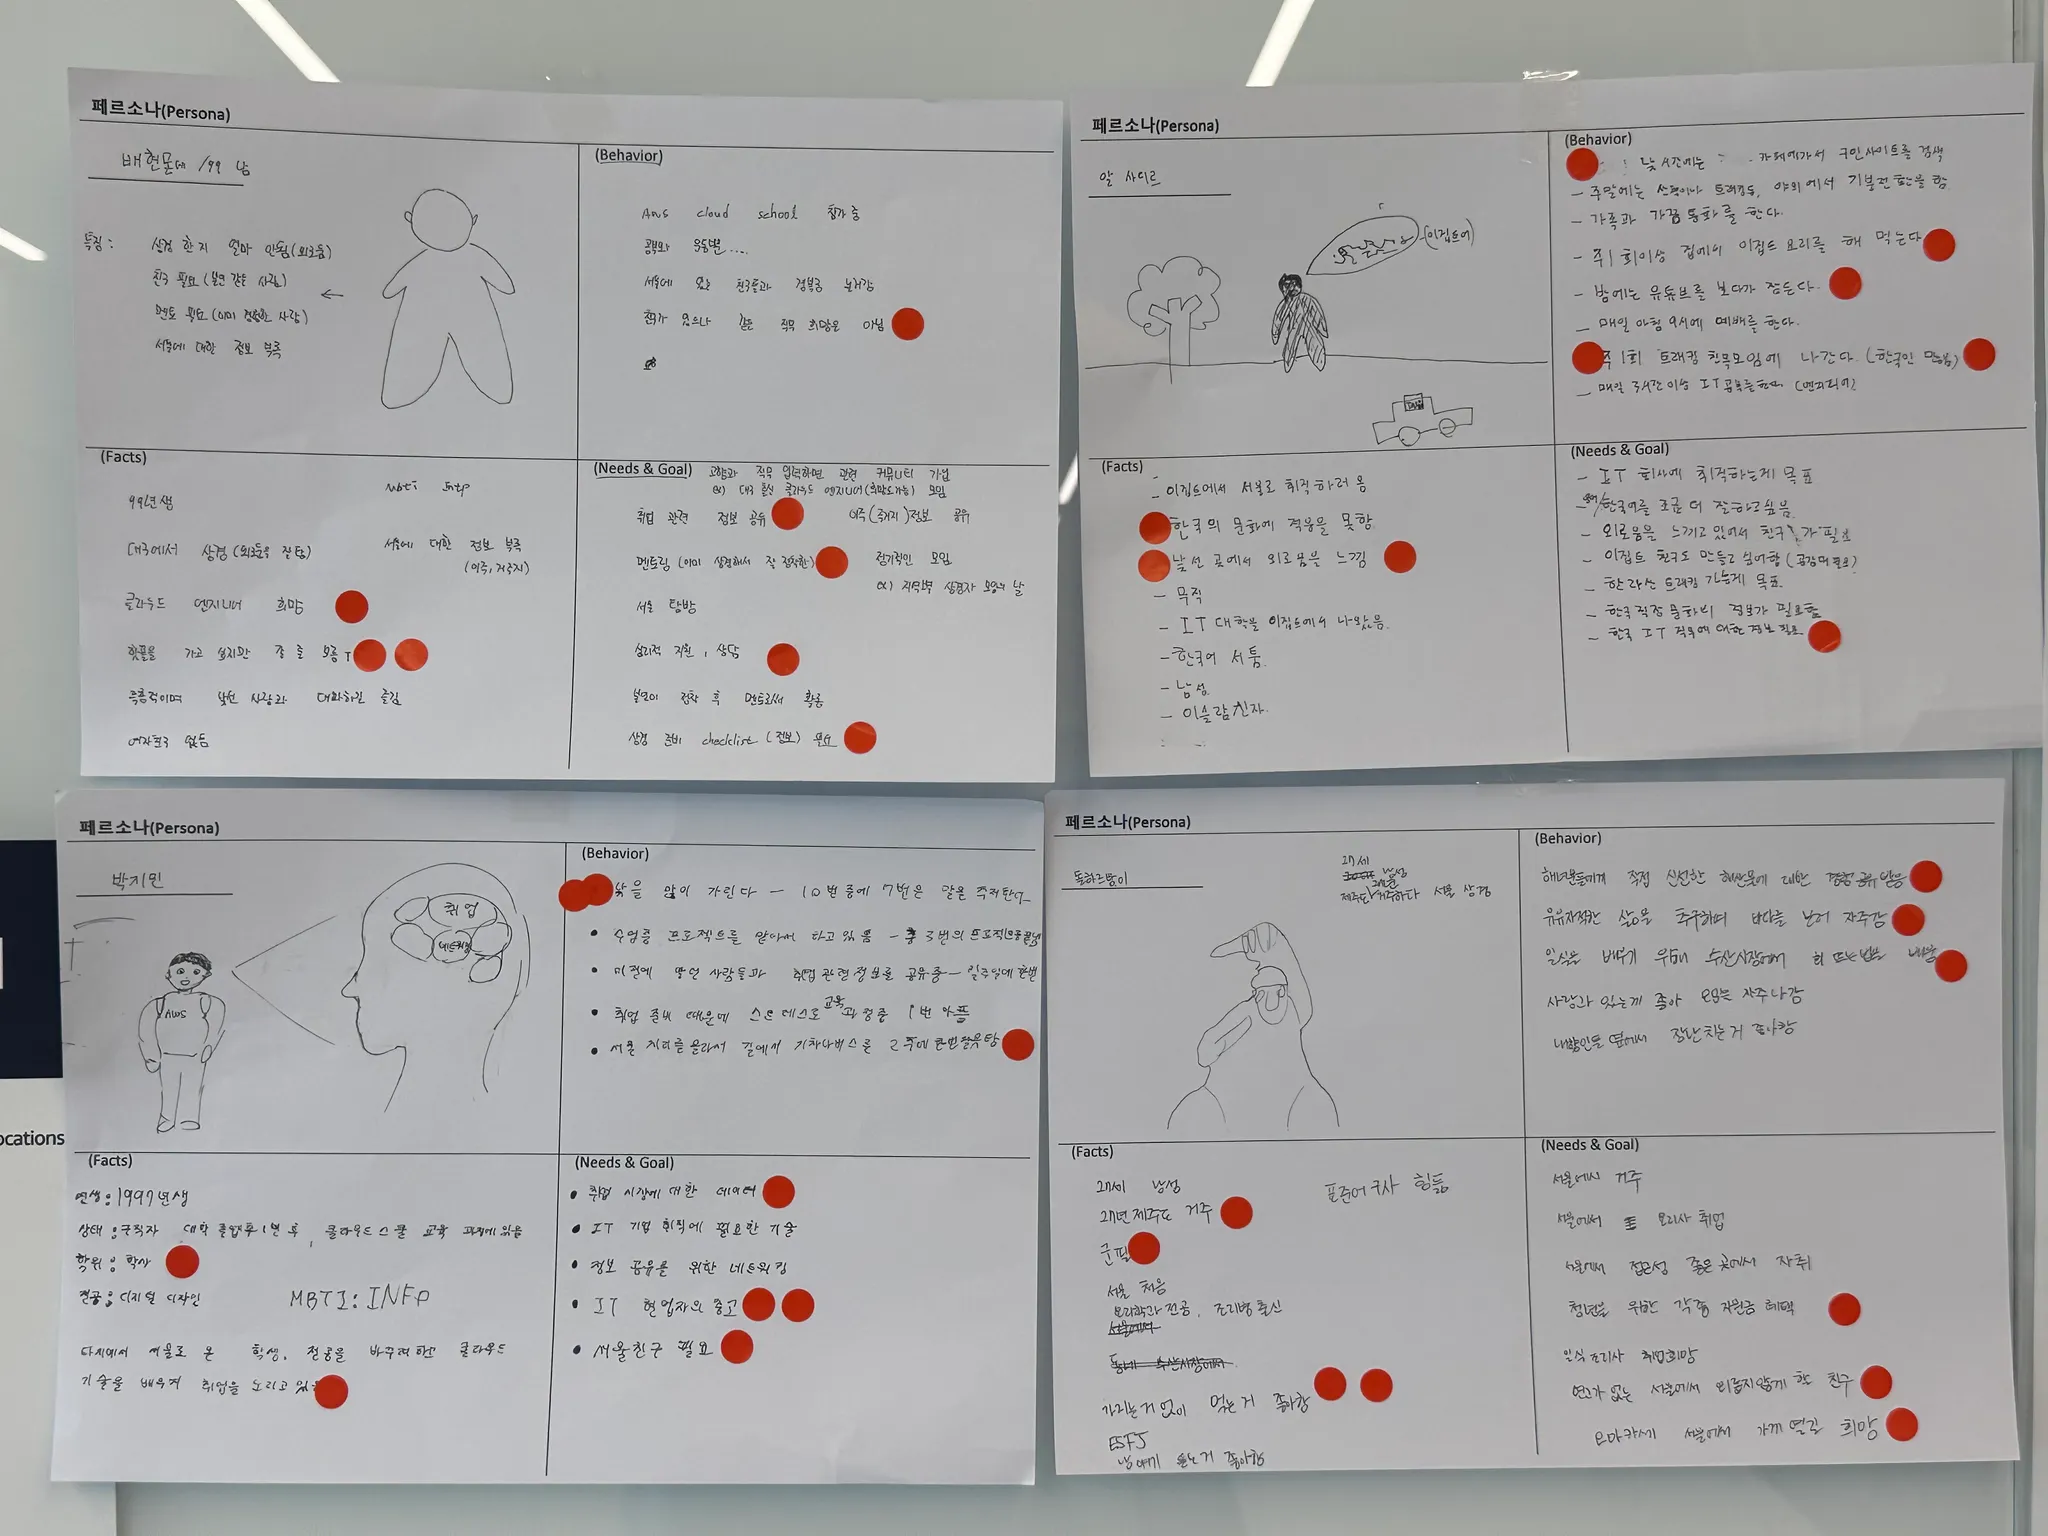 페르소나(Persona)
배현몬데 /99 남
특징: 상경 한지 얼마 안됨(외로움)
친구 필요 (본인 같은 사람)
멘토 필요 (이미 경험한 사람)
서울에 대한 정보 부족
(Behavior)
Aws cloud school 참가 중
공부와 운동병....
서울에 있는 친구들과 경복궁 놀러감
친구가 있으나 같은 직무 희망은 아님
(Facts)
99년생
mbti intp
대구에서 상경 (외로움을 잘 탐)
서울에 대한 정보 부족
(이주, 거주지)
클라우드 엔지니어 희망
핫플을 가고 싶지만 잘 모름
즉흥적이며 낯선 사람과 대화하길 즐김
여자친구 없음
(Needs & Goal)
고향과 직무 입력하면 관련 커뮤니티 가입
ex) 대구 출신 클라우드 엔지니어(희망도가능) 모임
취업 관련 정보 공유
이주(거주지)정보 공유
멘토링 (이미 상경해서 잘 정착한)
정기적인 모임
ex) 지역별 상경자 모임의 날
서울 탐방
심리적 지원, 상담
본인이 정착 후 멘토로서 활동
상경 준비 checklist (정보) 필요
페르소나(Persona)
알 사디르
(이집트어)
TAXI
(Behavior)
낮 시간에는 카페에가서 구인사이트를 검색
- 주말에는 산행이나 트래킹등, 야외에서 기분전환을 함
- 가족과 가끔 통화를 한다.
- 주1회이상 집에서 이집트 요리를 해 먹는다
- 밤에는 유튜브를 보다가 잠든다.
- 매일 아침 9시에 예배를 한다.
주 1회 트래킹 친목모임에 나간다. (한국인 만남)
- 매일 3시간이상 IT공부를한다 (엔지니어)
(Facts)
- 이집트에서 서울로 취직하러 옴
한국의 문화에 적응을 못함
낯선 곳에서 외로움을 느낌
- 무직
- IT 대학을 이집트에서 나왔음.
- 한국어 서툼.
- 남성
- 이슬람 신자.
(Needs & Goal)
- IT 회사에 취직하는게 목표
한국어를 조금 더 잘하고싶음
- 외로움을 느끼고 있어서 친구가 필요
- 이집트 친구도 만들고 싶어함 (공감대 필요)
- 한라산 트래킹 가는게 목표
- 한국직장 문화의 정보가 필요함
- 한국 IT 직무에 대한 정보 필요
페르소나(Persona)
박지민
AWS
취업
네트워킹
(Behavior)
낯을 많이 가린다 - 10번 중에 7번은 말을 주저한다
• 수업중 프로젝트를 맡아서 하고 있음 - 총 3번의 프로젝트
• 이전에 맡던 사람들과 취업 관련정보를 공유중 - 일주일에 한번
• 취업 준비 때문에 스트레스로 교육과정중 1번 아픔
• 서울 지리를 몰라서 길에서 기차나버스를 2주에 한번
(Facts)
연생:1997년생
상태:구직자 대학 졸업후 1년 후, 클라우드스쿨 교육 과정에 있음
학위: 학사
전공: 디지털 디자인
MBTI: INFP
타지에서 서울로 온 학생. 전공을 바꾸려하고 클라우드
기술을 배우며 취업을 노리고 있음
(Needs & Goal)
• 취업 시장에 대한 데이터
• IT 기업 취직에 필요한 기술
• 정보 공유를 위한 네트워킹
• IT 현업자의 충고
• 서울친구 필요
페르소나(Persona)
돌하르방이
27세
남성
서울 상경
(Behavior)
해녀분들에게 직접 신선한 해산물에 대한 경험 공유 받음
유유자적한 삶을 추구하며 바다를 보러 자주감
일식을 배우기 위해 수산시장에서 회 뜨는법을 배움
사람과 있는게 좋아 모임을 자주나감
내향인들 옆에서 장난치는거 좋아함
(Facts)
27세 남성
표준어 구사 힘듦
27년 제주도 거주
군필
서울 처음
요리학과 전공, 조리병 출신
가리는거 없이 먹는거 좋아함
ESFJ
남 얘기 듣는거 좋아함
(Needs & Goal)
서울에서 거주
서울에서 요리사 취업
서울에서 접근성 좋은 곳에서 자취
청년을 위한 각종 지원금 혜택
일식조리사 취업희망
연고가 없는 서울에서 외롭지않게 할 친구
오마카세 서울에서 가게 열길 희망
ocations